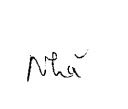 Nhã